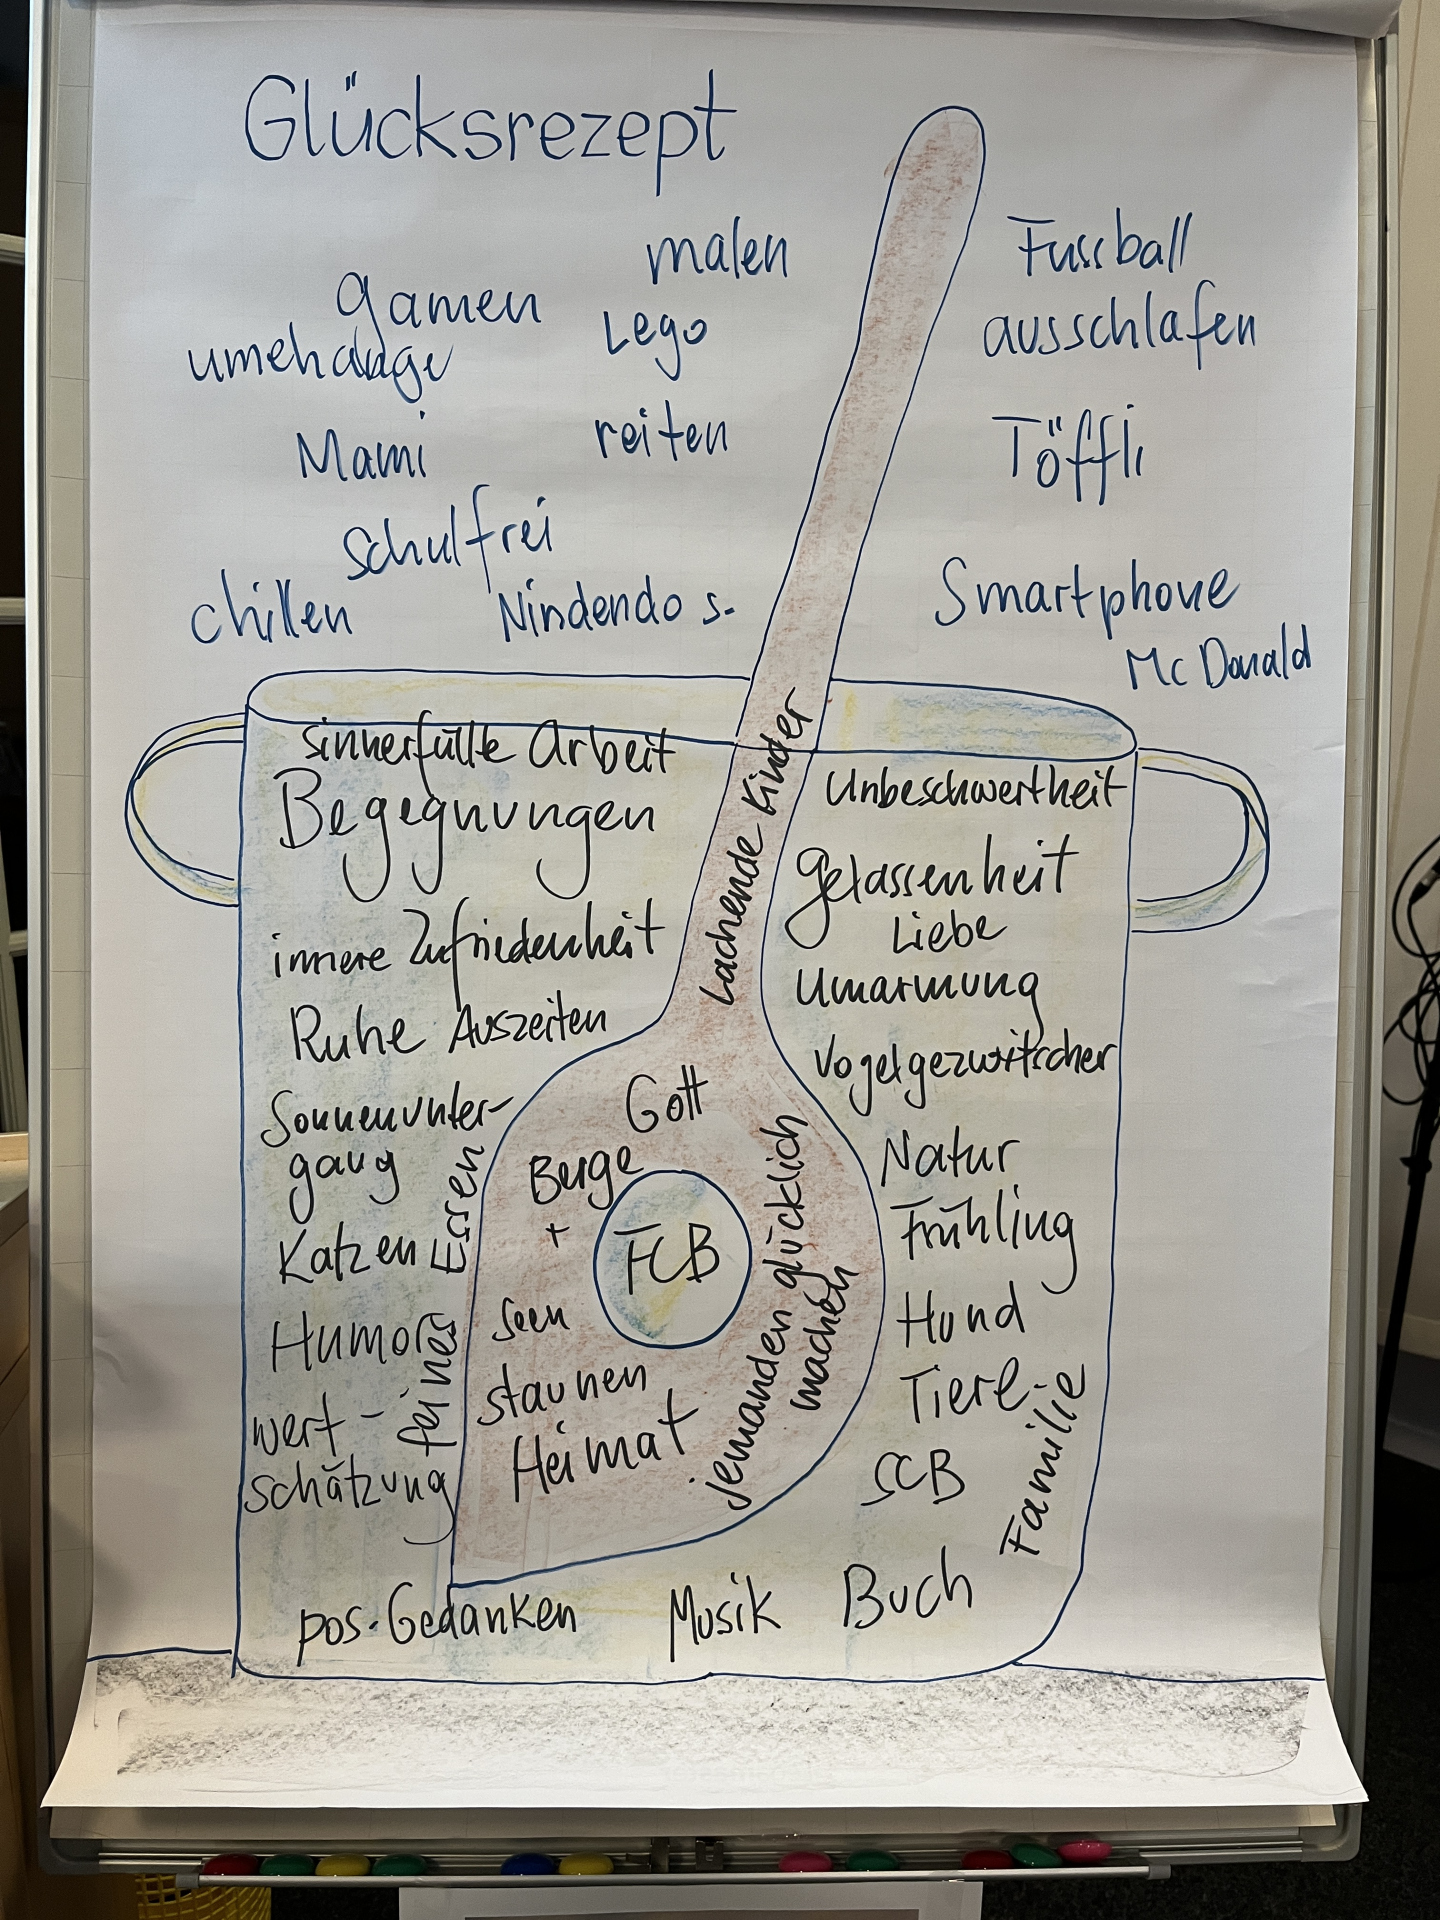 Glücksrezept
malen
Fussball
gamen
Lego
ausschlafen
Mami
reiten
Töffli
schulfrei
chillen
Nindendo s.
Smartphone
Mc Donald
sinnerfüllte Arbeit
Begegnungen
innere Zufriedenheit
Ruhe Auszeiten
Sonnenunter-
gang
Katzen
Humor
wert-
schätzung
feines Essen
pos. Gedanken
Lachende Kinder
Gott
Berge
+
Seen
FCB
staunen
Heimat
jemanden glücklich
machen
Unbeschwertheit
Gelassenheit
Liebe
Umarmung
Vogelgezwitscher
Natur
Frühling
Hund
Tiere
SCB
Familie
Musik
Buch